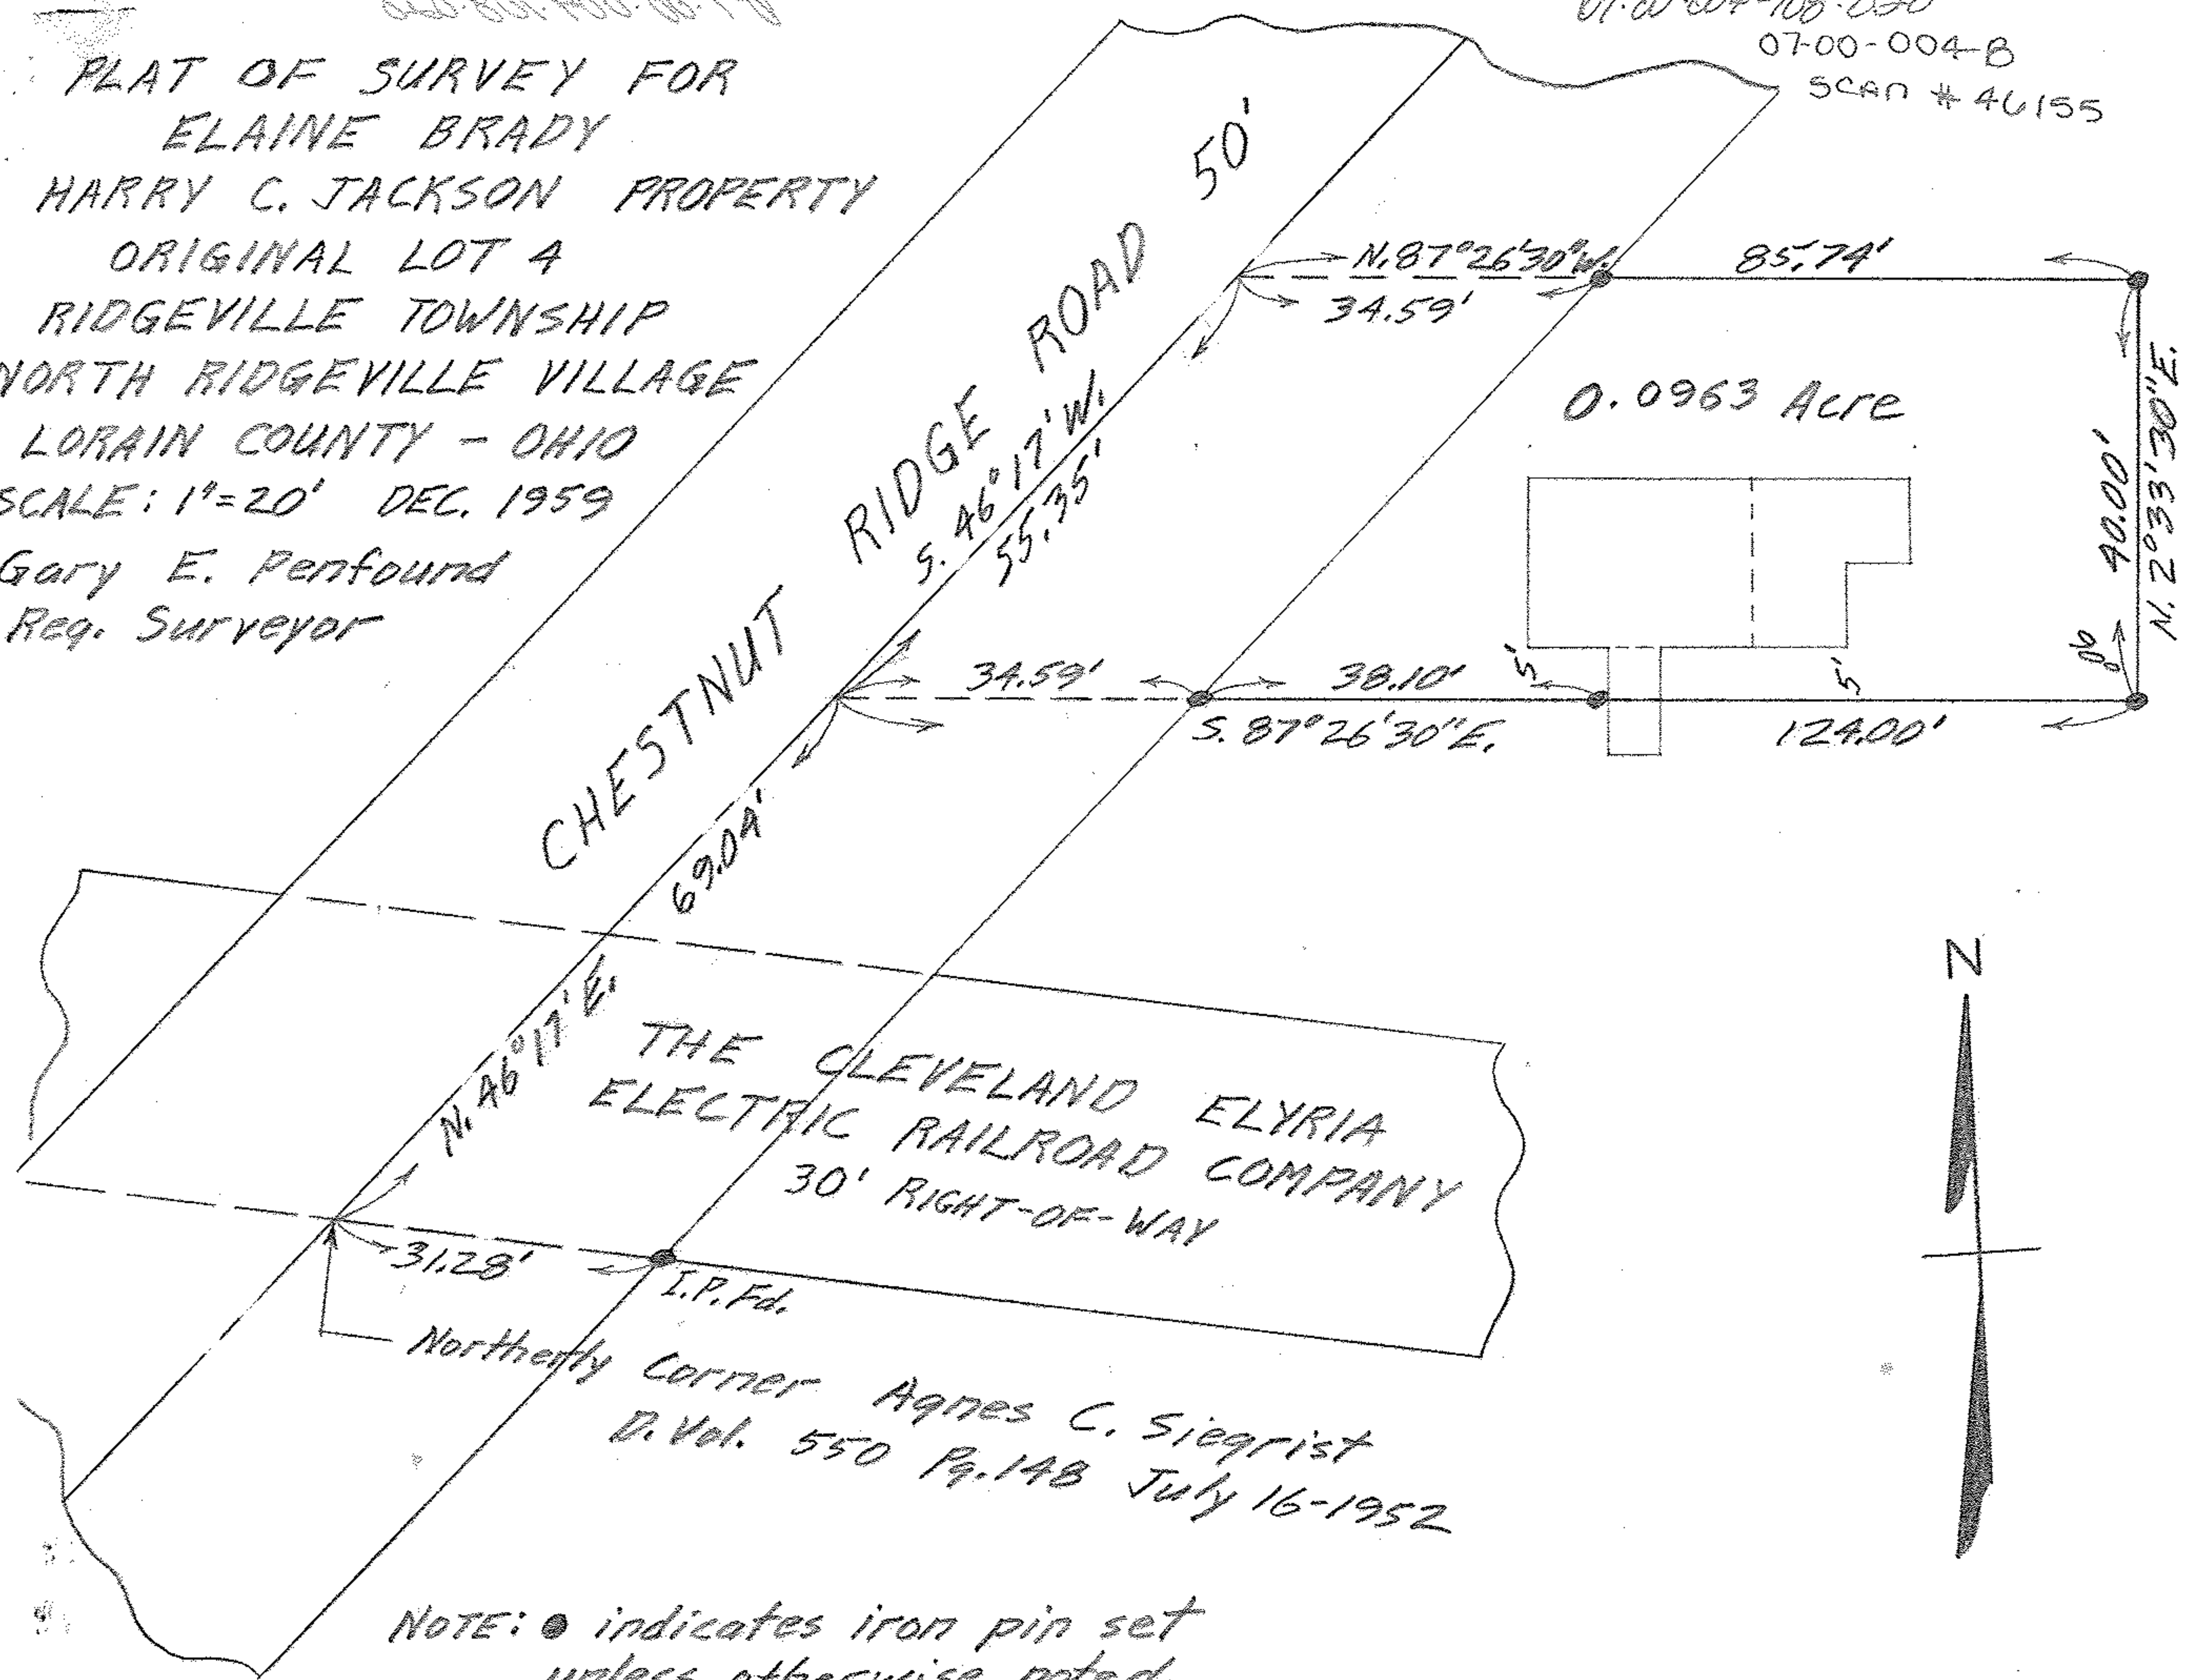 07-00-004-B
SCAN # 46155
PLAT OF SURVEY FOR
ELAINE BRADY
HARRY C. JACKSON PROPERTY
ORIGINAL LOT 4
RIDGEVILLE TOWNSHIP
NORTH RIDGEVILLE VILLAGE
LORAIN COUNTY - OHIO
SCALE: 1"=20' DEC. 1959
Gary E. Penfound
Reg. Surveyor
50'
CHESTNUT RIDGE ROAD
S. 46°17' W.
55.35'
N. 87°26'30" W.
34.59'
85.74'
0.0963 Acre
40.00'
N. 2°33'30" E.
90°
5'
5'
34.59'
38.10'
S. 87°26'30" E.
124.00'
69.04'
N. 46°17' E.
THE CLEVELAND ELYRIA
ELECTRIC RAILROAD COMPANY
30' RIGHT-OF-WAY
31.28'
I.P. Fd.
Northerly Corner Agnes C. Siegrist
D. Vol. 550 Pg. 148 July 16-1952
N
NOTE: ● indicates iron pin set
unless otherwise noted